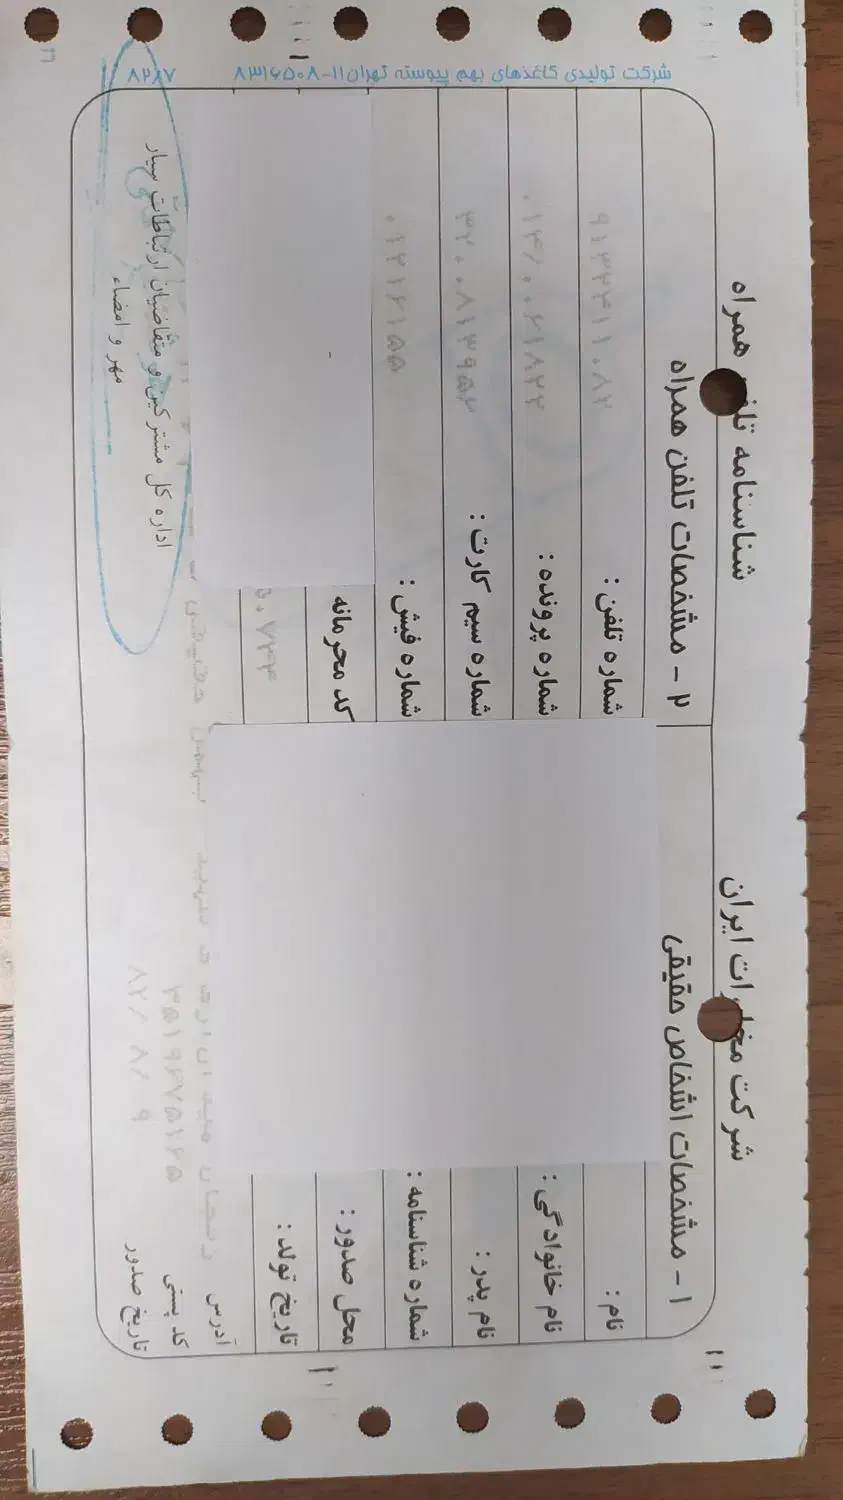 شرکت مخابرات ایران
شناسنامه تلفن همراه
۱ - مشخصات اشخاص حقیقی
نام :
نام خانوادگی :
نام پدر :
شماره شناسنامه :
محل صدور :
تاریخ تولد :
آدرس
کد پستی ۳۵۱۹۶۷۵۱۶۵
تاریخ صدور ۸۲/ ۸/ ۹
۲ - مشخصات تلفن همراه
شماره تلفن : ۹۱۲۲۴۱۱۰۸۲
شماره پرونده :
شماره سیم کارت :
شماره فیش : ۰۱۲۱۶۱۵۵
کد محرمانه
اداره کل مشترکین و متقاضیان ارتباطات سیار
مهر و امضاء
شرکت تولیدی کاغذهای بهم پیوسته تهران ۱۱-۸۳۱۶۵۰۸
۸۲/۷